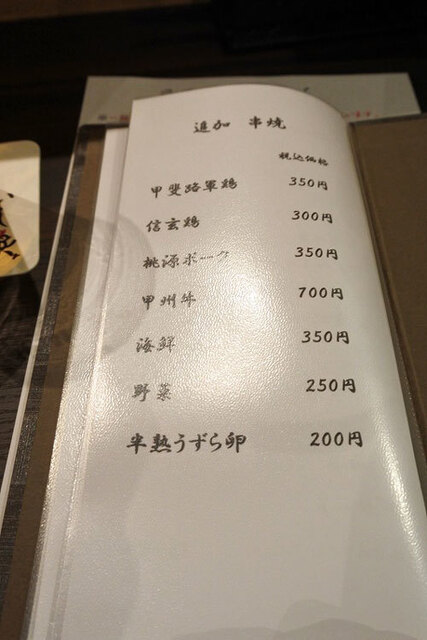 追加 串焼
税込価格
甲斐路軍鶏 350円
信玄鶏 300円
桃源ポーク 350円
甲州牛 700円
海鮮 350円
野菜 250円
半熟うずら卵 200円